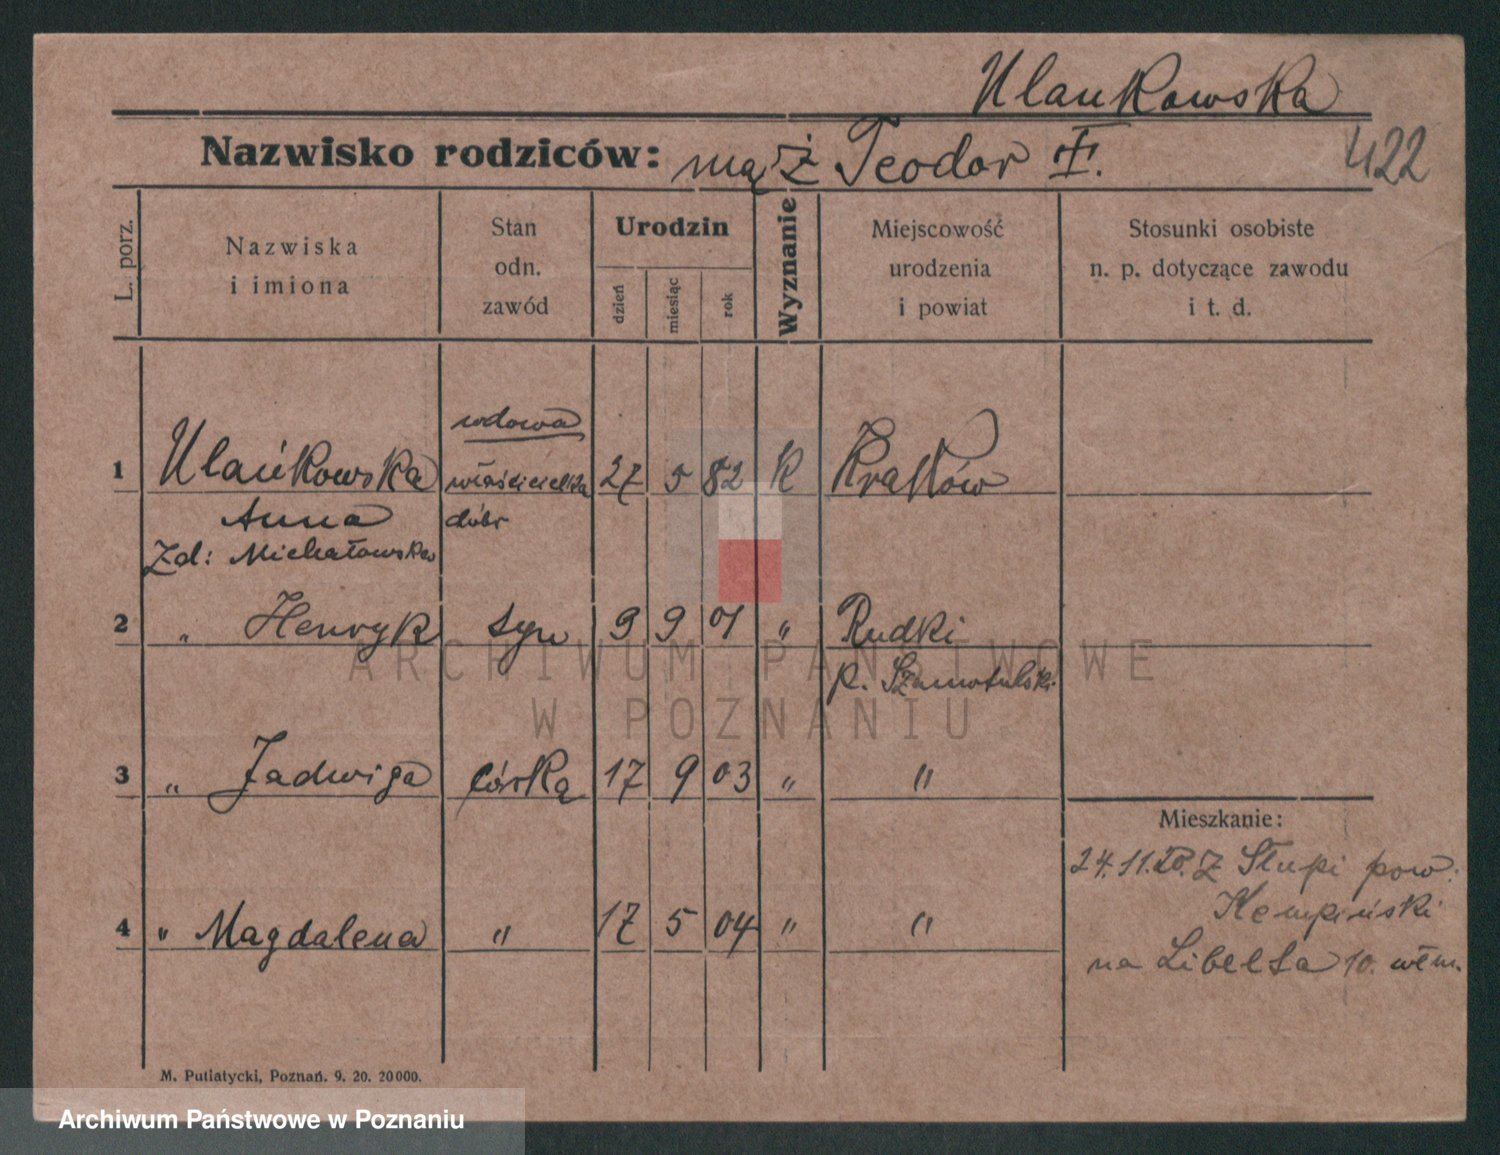 Ulankowska
422
Nazwisko rodziców: mąż Teodor †.
L. porz.
Nazwiska
i imiona
Stan
odn.
zawód
Urodzin
dzień
miesiąc
rok
Wyznanie
Miejscowość
urodzenia
i powiat
Stosunki osobiste
n. p. dotyczące zawodu
i t. d.
wdowa
1 Ulańkowska właścicielka 27 5 82 K Kraków
Anna dóbr
Zd: Michałowska
2 " Henryk syn 9 9 01 " Rudki
p. Szamotulski
3 " Jadwiga córka 17 9 03 " "
Mieszkanie:
24.11.20. Z Słupi pow:
Kempiński
4 " Magdalena " 17 5 04 " "
na Libelta 10. włm.
M. Putiatycki, Poznań. 9. 20. 20000.
ARCHIWUM PAŃSTWOWE
W POZNANIU
Archiwum Państwowe w Poznaniu